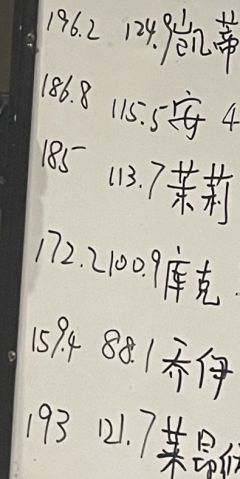 196.2 124.9 凯蒂
186.8 115.5 安 4
185 113.7 茉莉
172.2 100.9 库克
159.4 88.1 乔伊
193 121.7 莱昂